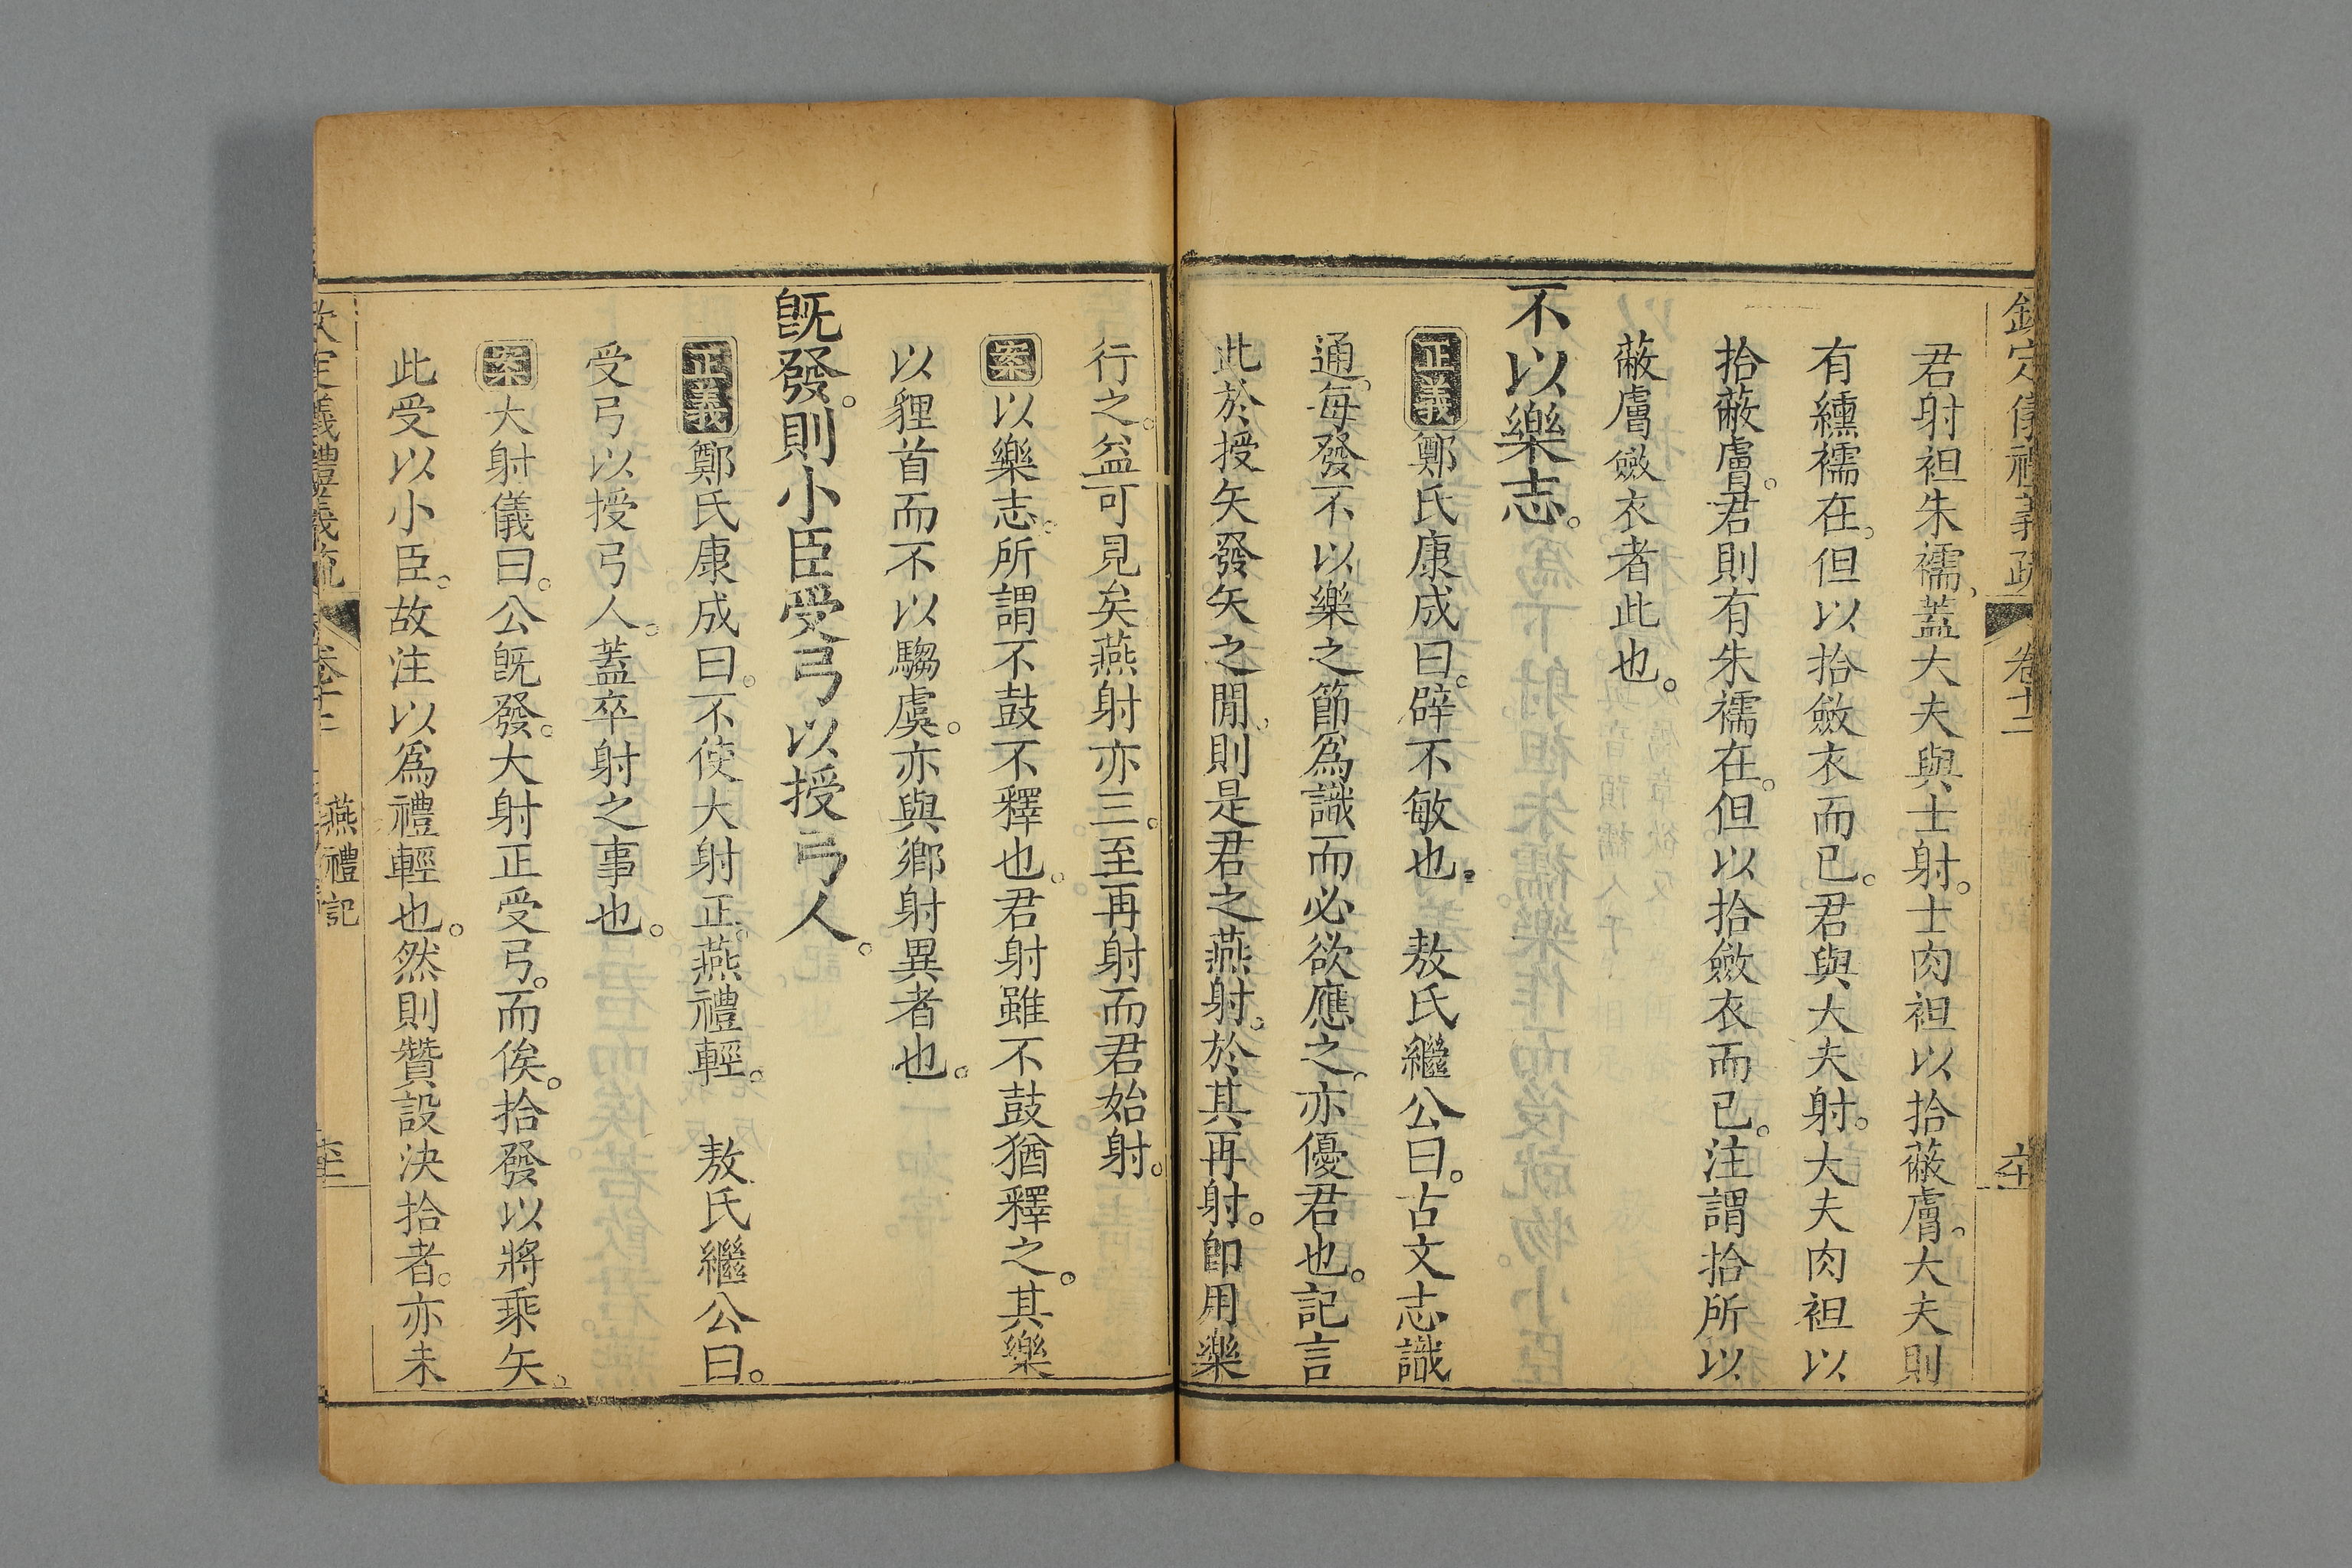 欽定儀禮義疏 卷十二 六十
君射袒朱襦、蓋大夫與士射。士肉袒以拾蔽膚。大夫則
有纁襦在。但以拾斂衣而已。君與大夫射。大夫肉袒以
拾蔽膚。君則有朱襦在。但以拾斂衣而已。注謂拾所以
蔽膚斂衣者此也。
不以樂志。
正義鄭氏康成曰。辟不敏也。 敖氏繼公曰。古文志識
通。每發不以樂之節爲識而必欲應之。亦優君也。記言
此於授矢發矢之閒。則是君之燕射。於其再射。卽用樂
行之。益可見矣燕射亦三。至再射而君始射。
案以樂志。所謂不鼓不釋也。君射雖不鼓猶釋之。其樂
以貍首而不以騶虞。亦與鄉射異者也。
旣發。則小臣受弓以授弓人。
正義鄭氏康成曰。不使大射正。燕禮輕。 敖氏繼公曰。
受弓以授弓人。蓋卒射之事也。
案大射儀曰。公旣發。大射正受弓。而俟。拾發以將乘矢。
此受以小臣。故注以爲禮輕也。然則贊設決拾者。亦未
欽定儀禮義疏 卷十二 燕禮記